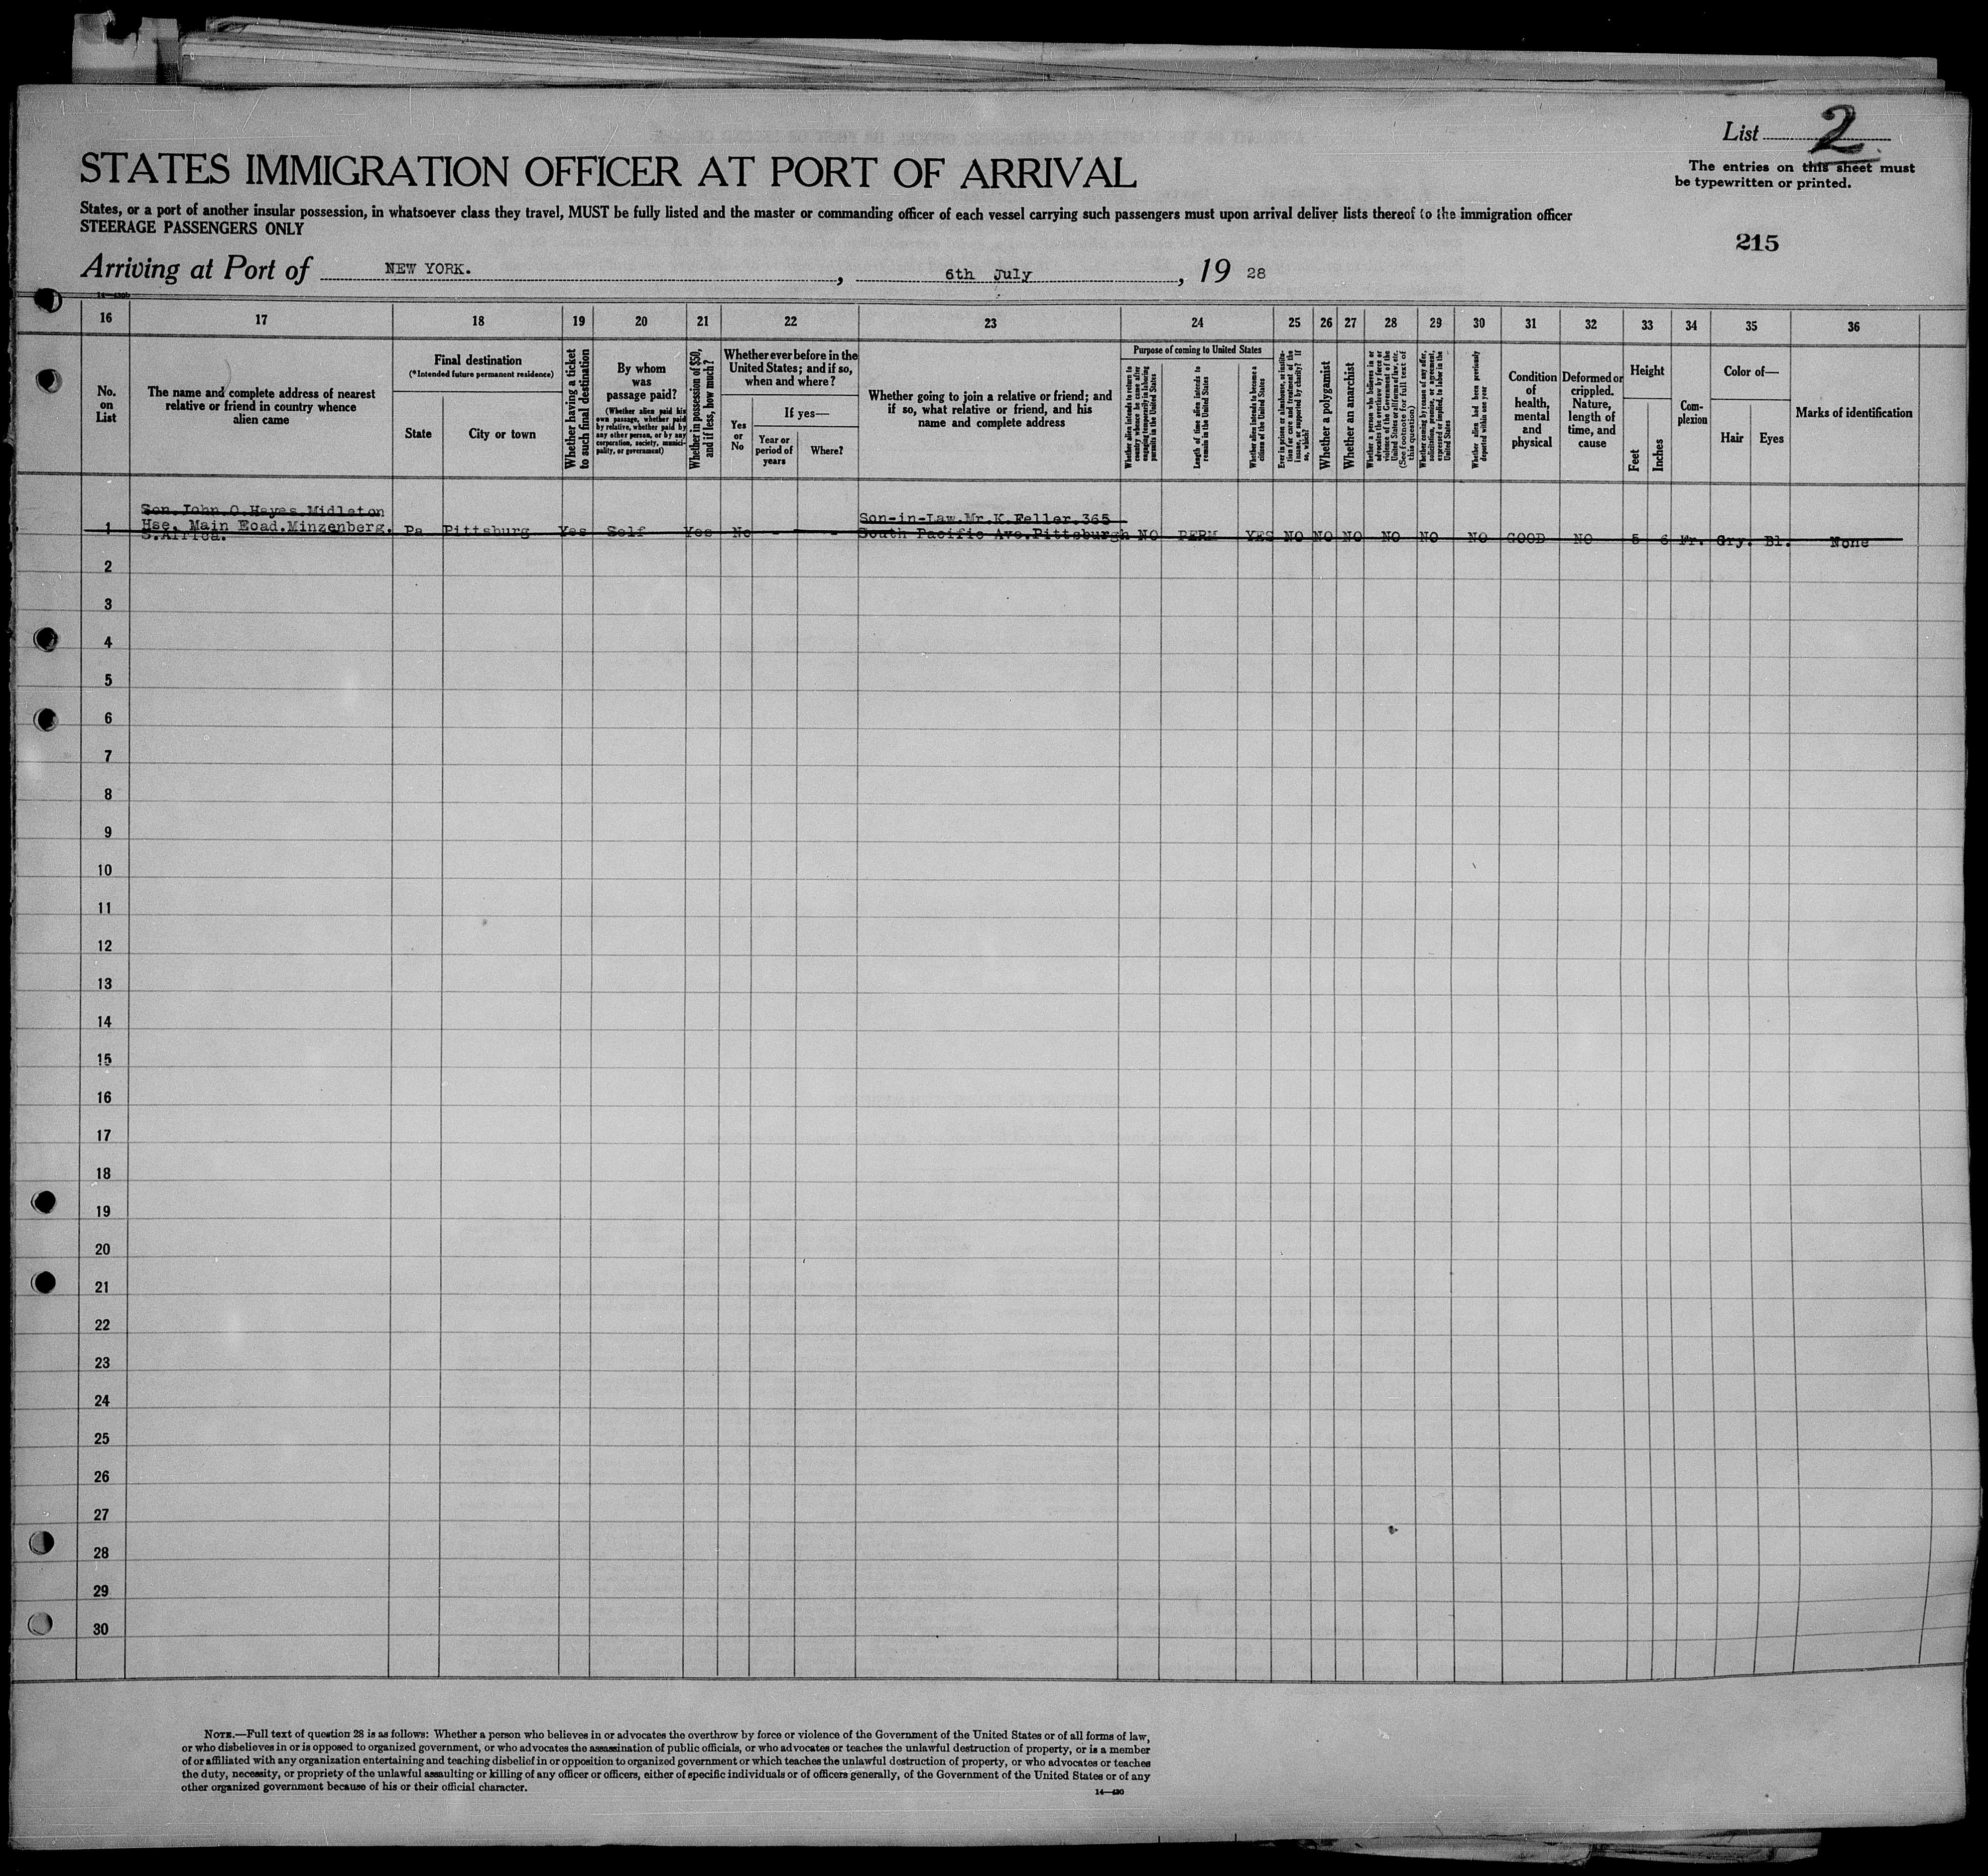 List 2
The entries on this sheet must
be typewritten or printed.
STATES IMMIGRATION OFFICER AT PORT OF ARRIVAL
States, or a port of another insular possession, in whatsoever class they travel, MUST be fully listed and the master or commanding officer of each vessel carrying such passengers must upon arrival deliver lists thereof to the immigration officer
STEERAGE PASSENGERS ONLY
215
Arriving at Port of NEW YORK. , 6th July , 19 28
16 17 18 19 20 21 22 23 24 25 26 27 28 29 30 31 32 33 34 35 36
No.
on
List
The name and complete address of nearest
relative or friend in country whence
alien came
Final destination
(*Intended future permanent residence)
State
City or town
Whether having a ticket
to such final destination
By whom
was
passage paid?
(Whether alien paid his
own passage, whether paid
by relative, whether paid by
any other person, or by any
corporation, society, munici-
pality, or government)
Whether in possession of $50,
and if less, how much?
Whether ever before in the
United States; and if so,
when and where?
Yes
or
No
If yes—
Year or
period of
years
Where?
Whether going to join a relative or friend; and
if so, what relative or friend, and his
name and complete address
Purpose of coming to United States
Whether alien intends to return to
country whence he came after
engaging temporarily in laboring
pursuits in the United States
Length of time alien intends to
remain in the United States
Whether alien intends to become a
citizen of the United States
Ever in prison or almshouse, or institu-
tion for care and treatment of the
insane, or supported by charity? If
so, which?
Whether a polygamist
Whether an anarchist
Whether a person who believes in or
advocates the overthrow by force or
violence of the Government of the
United States or all forms of law, etc.
(See footnote for full text of
this question)
Whether coming by reason of any offer,
solicitation, promise, or agreement,
expressed or implied, to labor in the
United States
Whether alien had been previously
deported within one year
Condition
of
health,
mental
and
physical
Deformed or
crippled.
Nature,
length of
time, and
cause
Height
Feet
Inches
Com-
plexion
Color of—
Hair
Eyes
Marks of identification
Son.John.O.Hayes.Midleton
Hse. Main Road.Minzenberg.
S.Africa.
Son-in-Law.Mr.K.Feller.365
South Pacific Ave.Pittsburgh
1 Pa Pittsburg Yes Self Yes No - - NO PERM YES NO NO NO NO NO NO GOOD NO 5 6 Fr. Gry. Bl. None
2
3
4
5
6
7
8
9
10
11
12
13
14
15
16
17
18
19
20
21
22
23
24
25
26
27
28
29
30
NOTE.—Full text of question 28 is as follows: Whether a person who believes in or advocates the overthrow by force or violence of the Government of the United States or of all forms of law,
or who disbelieves in or is opposed to organized government, or who advocates the assassination of public officials, or who advocates or teaches the unlawful destruction of property, or is a member
of or affiliated with any organization entertaining and teaching disbelief in or opposition to organized government or which teaches the unlawful destruction of property, or who advocates or teaches
the duty, necessity, or propriety of the unlawful assaulting or killing of any officer or officers, either of specific individuals or of officers generally, of the Government of the United States or of any
other organized government because of his or their official character.
14—430